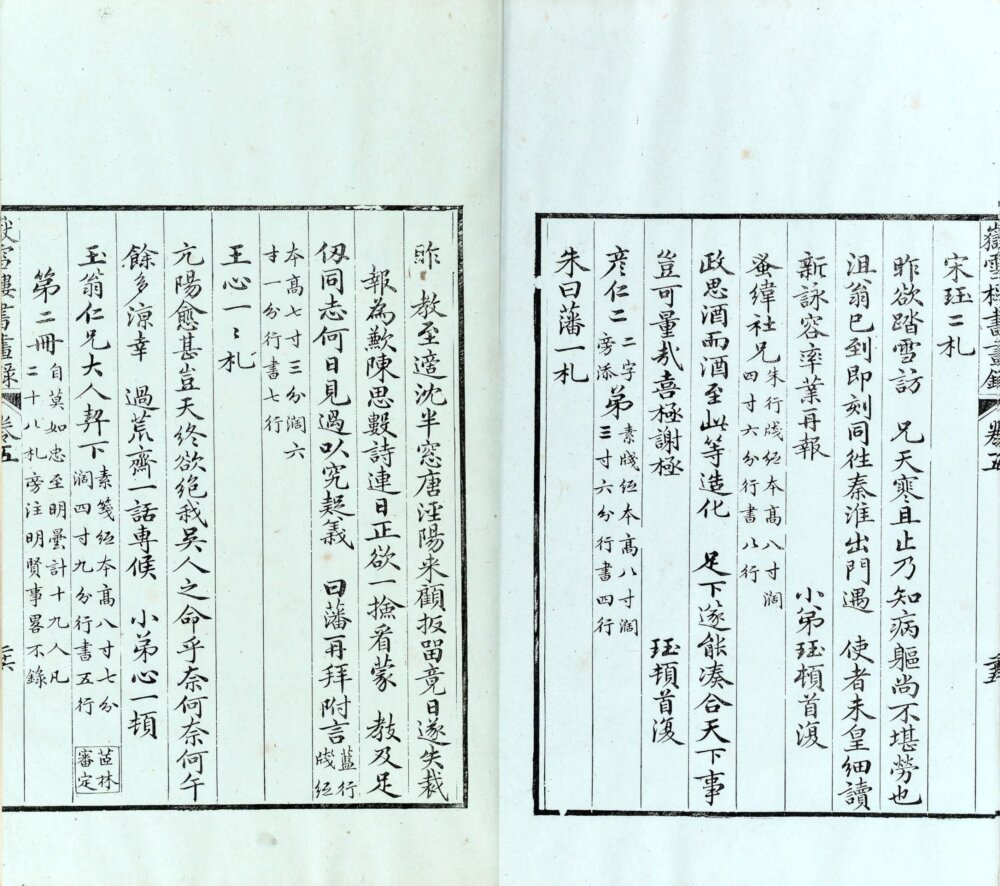 嶽雪樓書畫錄 卷五
宋珏二札
昨欲踏雪訪 兄天寒且止乃知病軀尚不堪勞也
沮翁已到即刻同往秦淮出門遇 使者未皇細讀
新詠容率業再報 小弟珏頓首復
蚤緯社兄 朱行牋紙本高八寸濶
四寸六分行書八行
政思酒而酒至此等造化 足下遂能湊合天下事
豈可量哉喜極謝極 珏頓首復
彦仁二 二字
旁添 弟 素牋紙本高八寸濶
三寸六分行書四行
朱曰藩一札
昨 教至適沈半窓唐涇陽來顧扳畱竟日遂失裁
報為歉陳思數詩連日正欲一撿看蒙 教及足
仭同志何日見過以究疑義 曰藩再拜附言 藍行
牋紙
本高七寸三分濶六
寸一分行書七行
王心一一札
亢陽愈甚豈天終欲絶我吳人之命乎奈何奈何午
餘多涼幸 過荒齋一話専候 小弟心一頓
玉翁仁兄大人契下 素箋紙本高八寸七分
濶四寸九分行書五行 茝林
審定
第二冊 自莫如忠至明曇計十九人凡
二十八札旁注明賢事畧不錄
嶽雪樓書畫錄 卷五